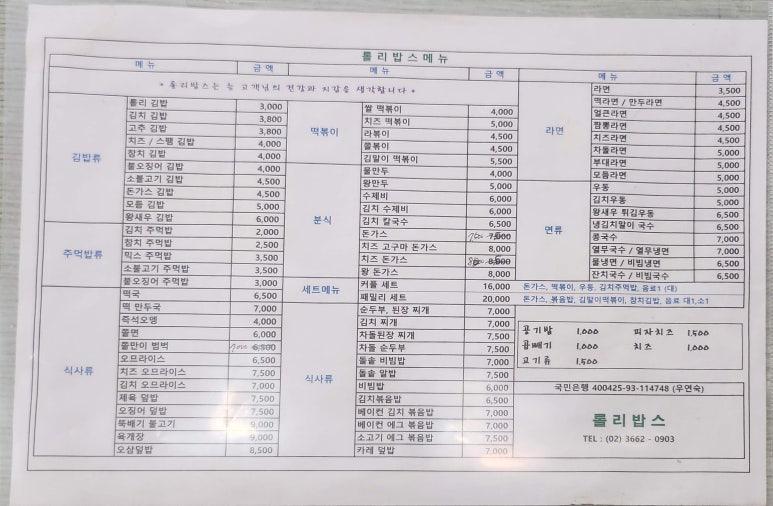 롤리밥스메뉴
메뉴 금액 메뉴 금액 메뉴 금액
* 롤리밥스는 늘 고객님의 건강과 지갑을 생각합니다 *
김밥류
롤리 김밥 3,000
김치 김밥 3,800
고추 김밥 3,800
치즈 / 스팸 김밥 4,000
참치 김밥 4,000
불오징어 김밥 4,000
소불고기 김밥 4,500
돈가스 김밥 4,500
모듬 김밥 5,000
왕새우 김밥 6,000
주먹밥류
김치 주먹밥 2,000
참치 주먹밥 2,500
믹스 주먹밥 3,500
소불고기 주먹밥 3,500
불오징어 주먹밥 3,000
식사류
떡국 6,500
떡 만두국 7,000
즉석오뎅 4,000
쫄면 6,000
쫄만이 범벅
오므라이스 6,500
치즈 오므라이스 7,500
김치 오므라이스 7,000
제육 덮밥 7,500
오징어 덮밥 7,500
뚝배기 불고기 9,000
육개장 9,000
오삼덮밥 8,500
떡볶이
쌀 떡볶이 4,000
치즈 떡볶이 5,000
라볶이 4,500
쫄볶이 4,500
김말이 떡볶이 5,500
분식
물만두 4,000
왕만두 5,000
수제비 6,000
김치 수제비 6,000
김치 칼국수 6,500
돈가스
치즈 고구마 돈가스 8,000
치즈 돈가스
왕 돈가스 8,000
세트메뉴
커플 세트 16,000 돈가스, 떡볶이, 우동, 김치주먹밥, 음료1 (대)
패밀리 세트 20,000 돈가스, 볶음밥, 김말이떡볶이, 참치김밥, 음료 대1,소1
식사류
순두부, 된장 찌개 7,000
김치 찌개 7,000
차돌된장 찌개 7,500
차돌 순두부 7,500
돌솥 비빔밥 7,000
돌솥 알밥 7,500
비빔밥 6,000
김치볶음밥 6,500
베이컨 김치 볶음밥 7,000
베이컨 에그 볶음밥 7,000
소고기 에그 볶음밥 7,500
카레 덮밥 7,000
라면
라면 3,500
떡라면 / 만두라면 4,500
얼큰라면 4,500
짬뽕라면 4,500
치즈라면 4,500
차돌라면 5,000
부대라면 5,000
모듬라면 5,000
면류
우동 5,000
김치우동 5,000
왕새우 튀김우동 6,500
냉김치말이 국수 6,500
콩국수 7,000
열무국수 / 열무냉면 7,000
물냉면 / 비빔냉면 6,500
잔치국수 / 비빔국수 6,500
공기밥 1,000 피자치즈 1,500
곱빼기 1,000 치즈 1,000
고기류 1,500
국민은행 400425-93-114748 (우연숙)
롤리밥스
TEL : (02) 3662 - 0903